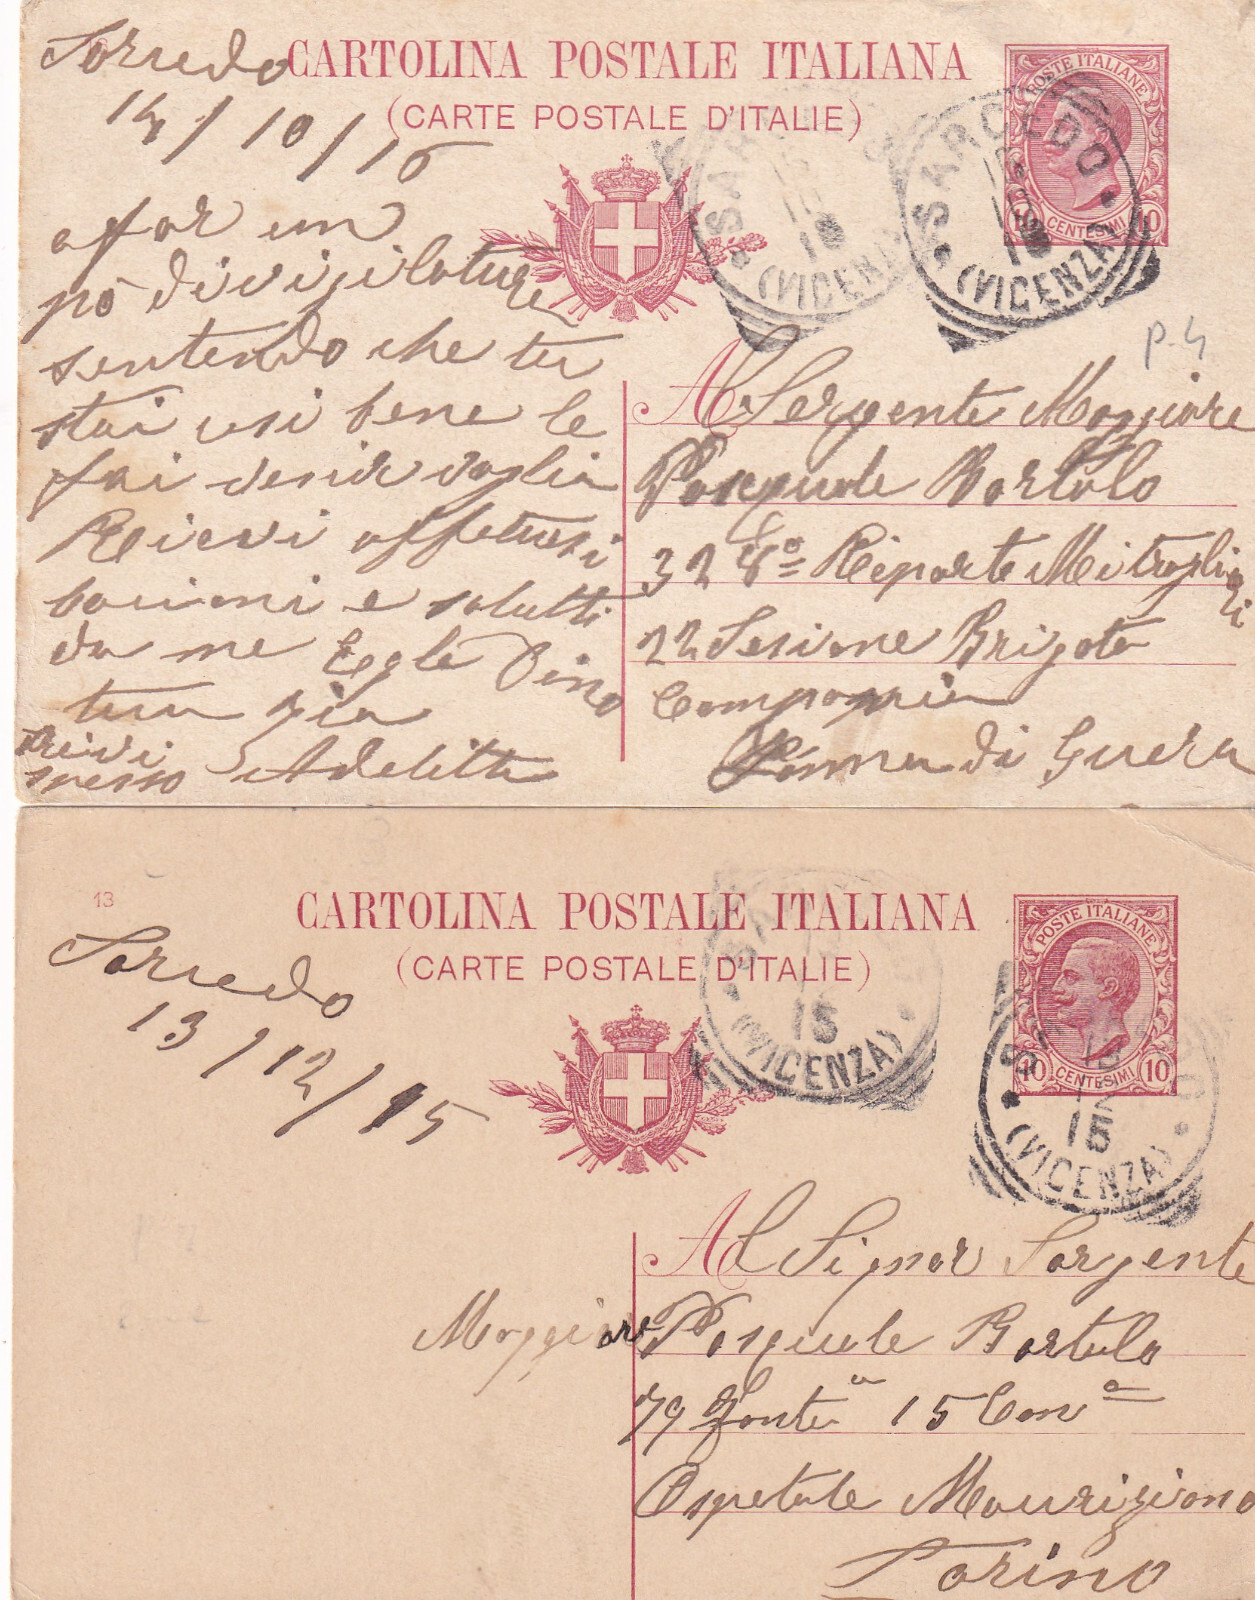 Sarredo
CARTOLINA POSTALE ITALIANA
14/10/16
(CARTE POSTALE D'ITALIE)
POSTE ITALIANE
10 CENTESIMI 10
SARCEDO
(VICENZA)
SARCEDO
(VICENZA)
p. 4
a far un
pò di vigilature
sentendo che tu
stai usi bene le
fai
Ricevi affetuosi
bacioni e salutti
da me Egle Pino
tua zia
Adelitta
scrivi
spesso
Al Sergente Maggiore
Pasquale Bortolo
328° Riparte Mitragliatrici
22 Sesione Brigata
Compagnia
Zonna di Guera
13
CARTOLINA POSTALE ITALIANA
(CARTE POSTALE D'ITALIE)
POSTE ITALIANE
10 CENTESIMI 10
Sarredo
13/12/15
15
(VICENZA)
12
15
(VICENZA)
Al Signor Sargente
Maggiore Pasquale Bortolo
79 Fonteria 15 Con a
Ospetale Mauriziono
Torino